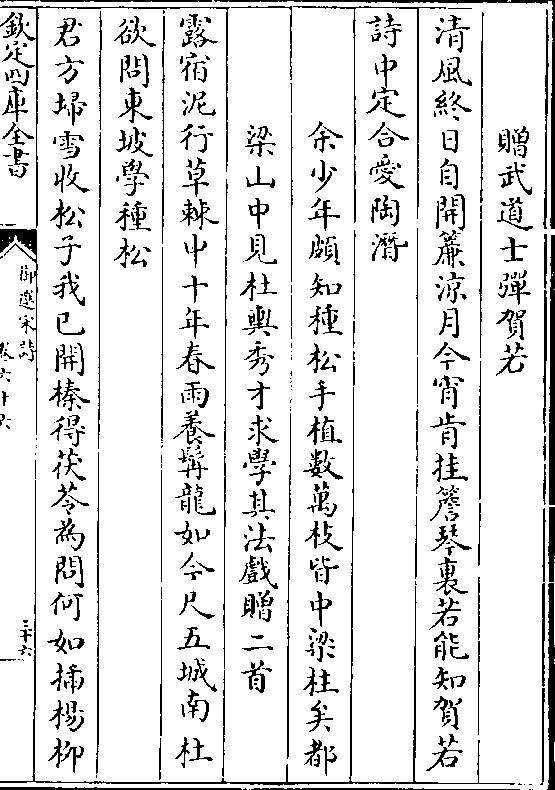 贈武道士彈賀若
清風終日自開簾涼月今宵肯挂簷琴裏若能知賀若
詩中定合愛陶潛
余少年頗知種松手植數萬枝皆中梁柱矣都
梁山中見杜輿秀才求學其法戲贈二首
露宿泥行草棘中十年春雨養髯龍如今尺五城南杜
欲問東坡學種松
君方埽雪收松子我已開榛得茯苓為問何如插楊柳
欽定四庫全書
御選宋詩
三十六